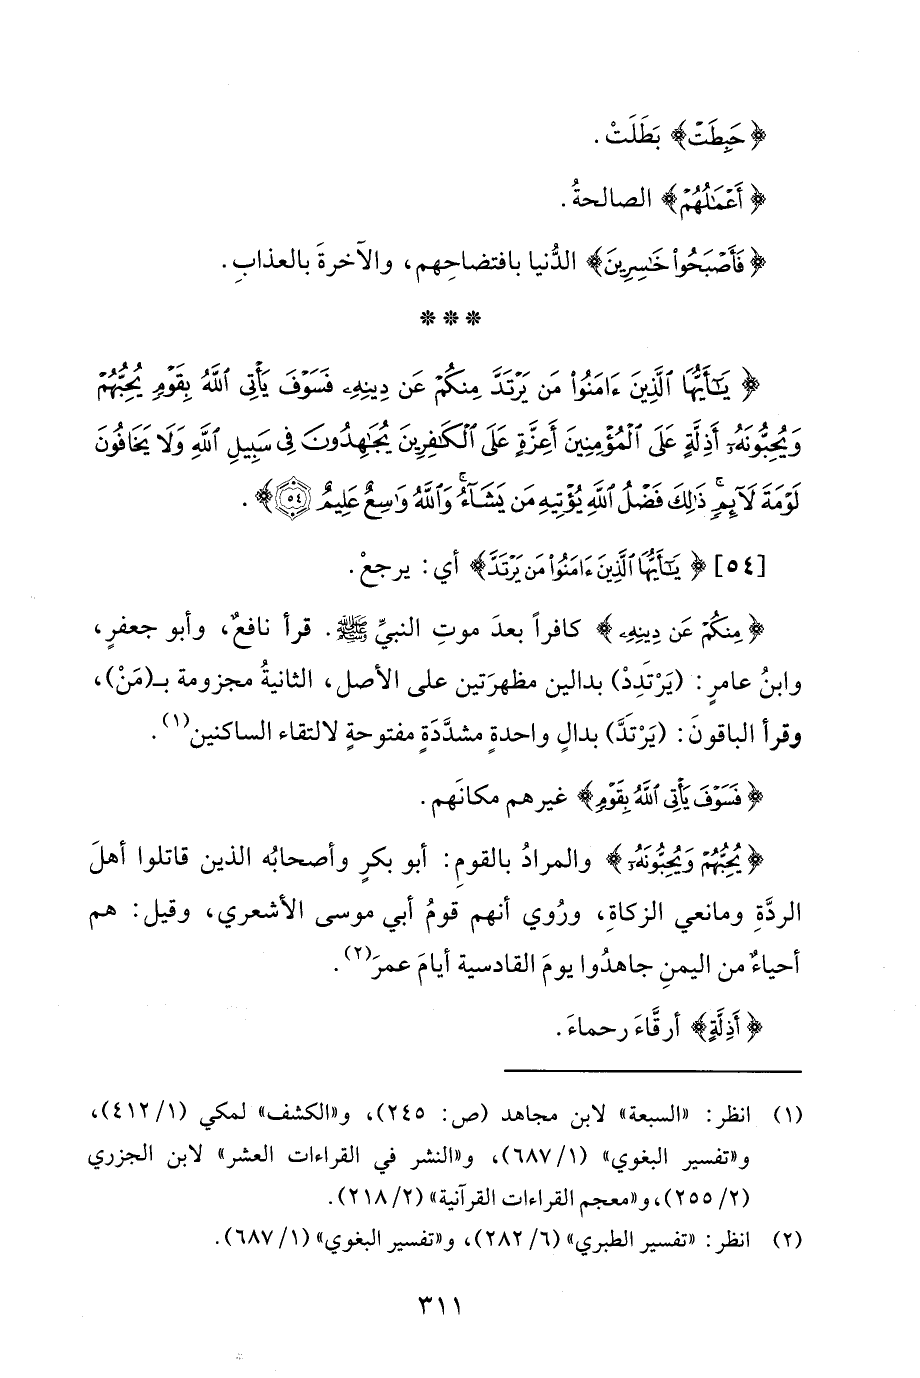 ﴿حَبِطَتْ﴾ بَطَلَتْ.
﴿أَعْمَٰلُهُمْ﴾ الصالحةُ.
﴿فَأَصْبَحُوا۟ خَٰسِرِينَ﴾ الدُّنيا بافتضاحِهم، والآخرةَ بالعذابِ.
* * *
﴿يَٰٓأَيُّهَا ٱلَّذِينَ ءَامَنُوا۟ مَن يَرْتَدَّ مِنكُمْ عَن دِينِهِۦ فَسَوْفَ يَأْتِى ٱللَّهُ بِقَوْمٍ يُحِبُّهُمْ
وَيُحِبُّونَهُۥٓ أَذِلَّةٍ عَلَى ٱلْمُؤْمِنِينَ أَعِزَّةٍ عَلَى ٱلْكَٰفِرِينَ يُجَٰهِدُونَ فِى سَبِيلِ ٱللَّهِ وَلَا يَخَافُونَ
لَوْمَةَ لَآئِمٍ ۚ ذَٰلِكَ فَضْلُ ٱللَّهِ يُؤْتِيهِ مَن يَشَآءُ ۚ وَٱللَّهُ وَٰسِعٌ عَلِيمٌ ٥٤﴾.
[٥٤] ﴿يَٰٓأَيُّهَا ٱلَّذِينَ ءَامَنُوا۟ مَن يَرْتَدَّ﴾ أي: يرجعْ.
﴿مِنكُمْ عَن دِينِهِۦ﴾ كافراً بعدَ موتِ النبيِّ ﷺ. قرأ نافعٌ، وأبو جعفرٍ،
وابنُ عامرٍ: (يَرْتَدِدْ) بدالين مظهرَتين على الأصل، الثانيةُ مجزومة بـ(مَنْ)،
وقرأ الباقونَ: (يَرْتَدَّ) بدالٍ واحدةٍ مشدَّدَةٍ مفتوحةٍ لالتقاء الساكنين(١).
﴿فَسَوْفَ يَأْتِى ٱللَّهُ بِقَوْمٍ﴾ غيرهم مكانَهم.
﴿يُحِبُّهُمْ وَيُحِبُّونَهُۥٓ﴾ والمرادُ بالقومِ: أبو بكرٍ وأصحابُه الذين قاتلوا أهلَ
الردَّةِ ومانعي الزكاةِ، ورُوي أنهم قومُ أبي موسى الأشعري، وقيل: هم
أحياءٌ من اليمنِ جاهدُوا يومَ القادسية أيامَ عمرَ(٢).
﴿أَذِلَّةٍ﴾ أرقَّاءَ رحماءَ.
(١) انظر: «السبعة» لابن مجاهد (ص: ٢٤٥)، و«الكشف» لمكي (١/ ٤١٢)،
و«تفسير البغوي» (١/ ٦٨٧)، و«النشر في القراءات العشر» لابن الجزري
(٢/ ٢٥٥)، و«معجم القراءات القرآنية» (٢/ ٢١٨).
(٢) انظر: «تفسير الطبري» (٦/ ٢٨٢)، و«تفسير البغوي» (١/ ٦٨٧).
٣١١